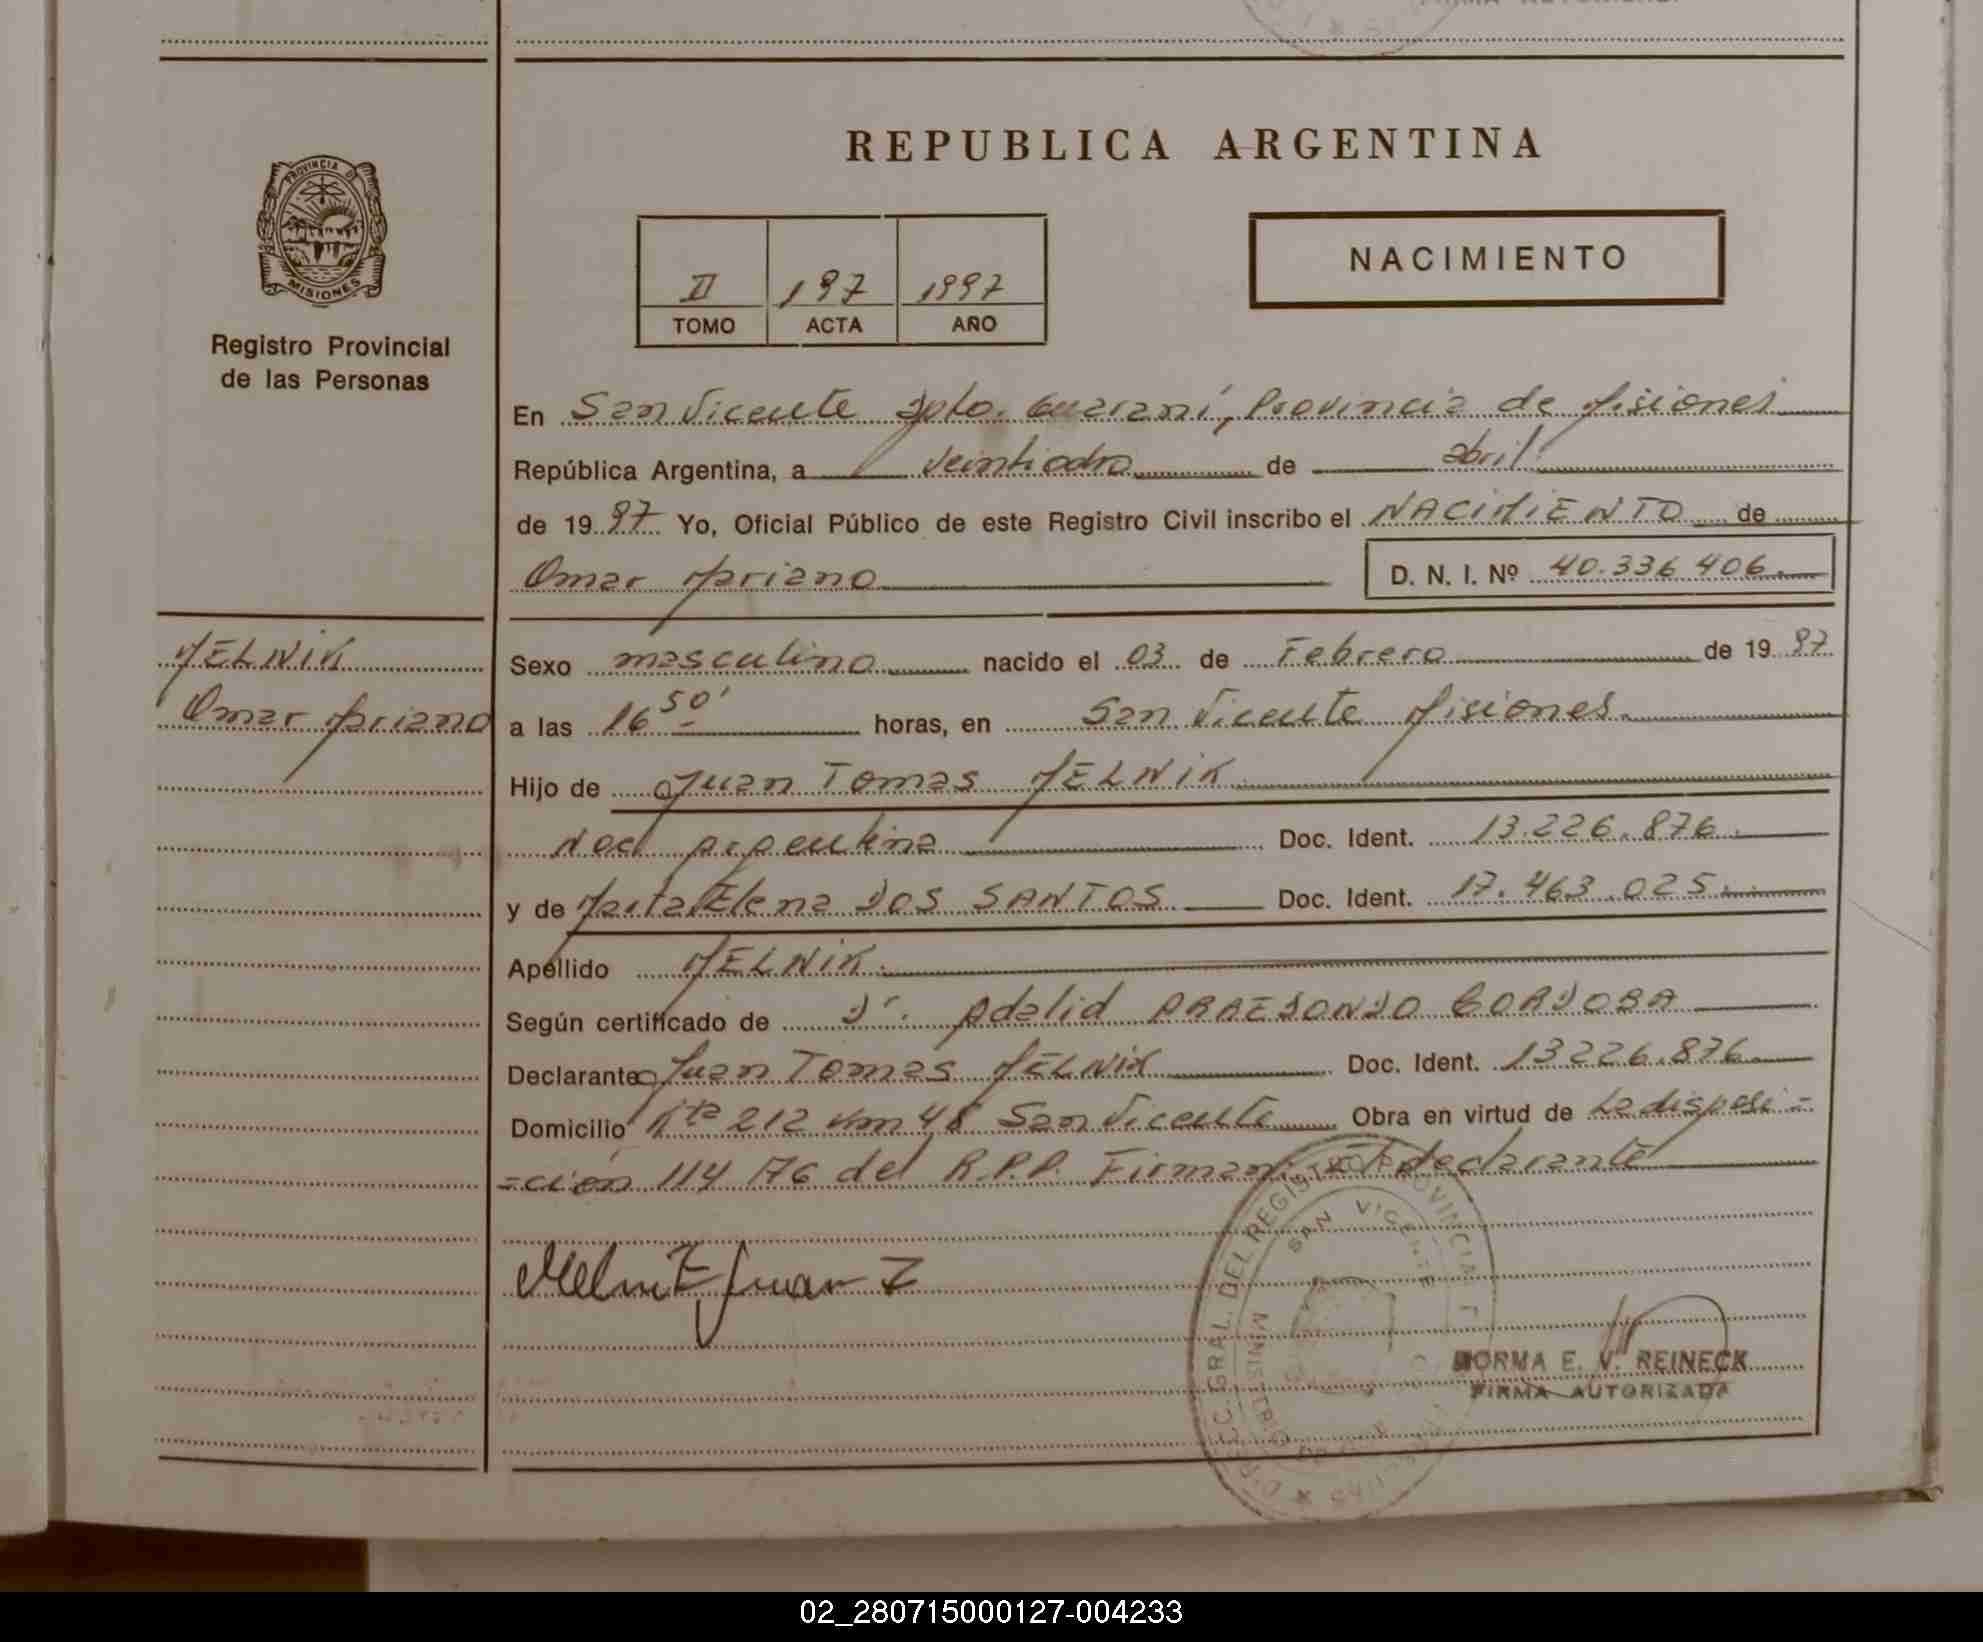 REPUBLICA ARGENTINA
PROVINCIA DE
MISIONES
Registro Provincial
de las Personas
II 197 1997
TOMO ACTA AÑO
NACIMIENTO
En San Vicente Dpto. Guaraní, Provincia de Misiones
República Argentina, a veinticuatro de abril
de 1997 Yo, Oficial Público de este Registro Civil inscribo el NACIMIENTO de
Omar Mariano D. N. I. Nº 40.336.406.
MELNIK
Omar Mariano
Sexo masculino nacido el 03 de Febrero de 1997
a las 16 50' horas, en San Vicente Misiones.
Hijo de Juan Tomas MELNIK
Nac. Argentina Doc. Ident. 13.226.876.
y de Marta Elena DOS SANTOS Doc. Ident. 17.463.025.
Apellido MELNIK.
Según certificado de Dr. Adalid ARREDONDO CORDOBA
Declarante Juan Tomas MELNIK Doc. Ident. 13226.876
Domicilio Rta 212 Km 48 San Vicente Obra en virtud de La disposi=
=ción 114/76 del R.P.P. Firman: El declarante
Melnik Juan T
DIREC. GRAL. DEL REGISTRO PROVINCIAL
SAN VICENTE
MINISTERIO
NORMA E. V. REINECK
FIRMA AUTORIZADA
02_280715000127-004233